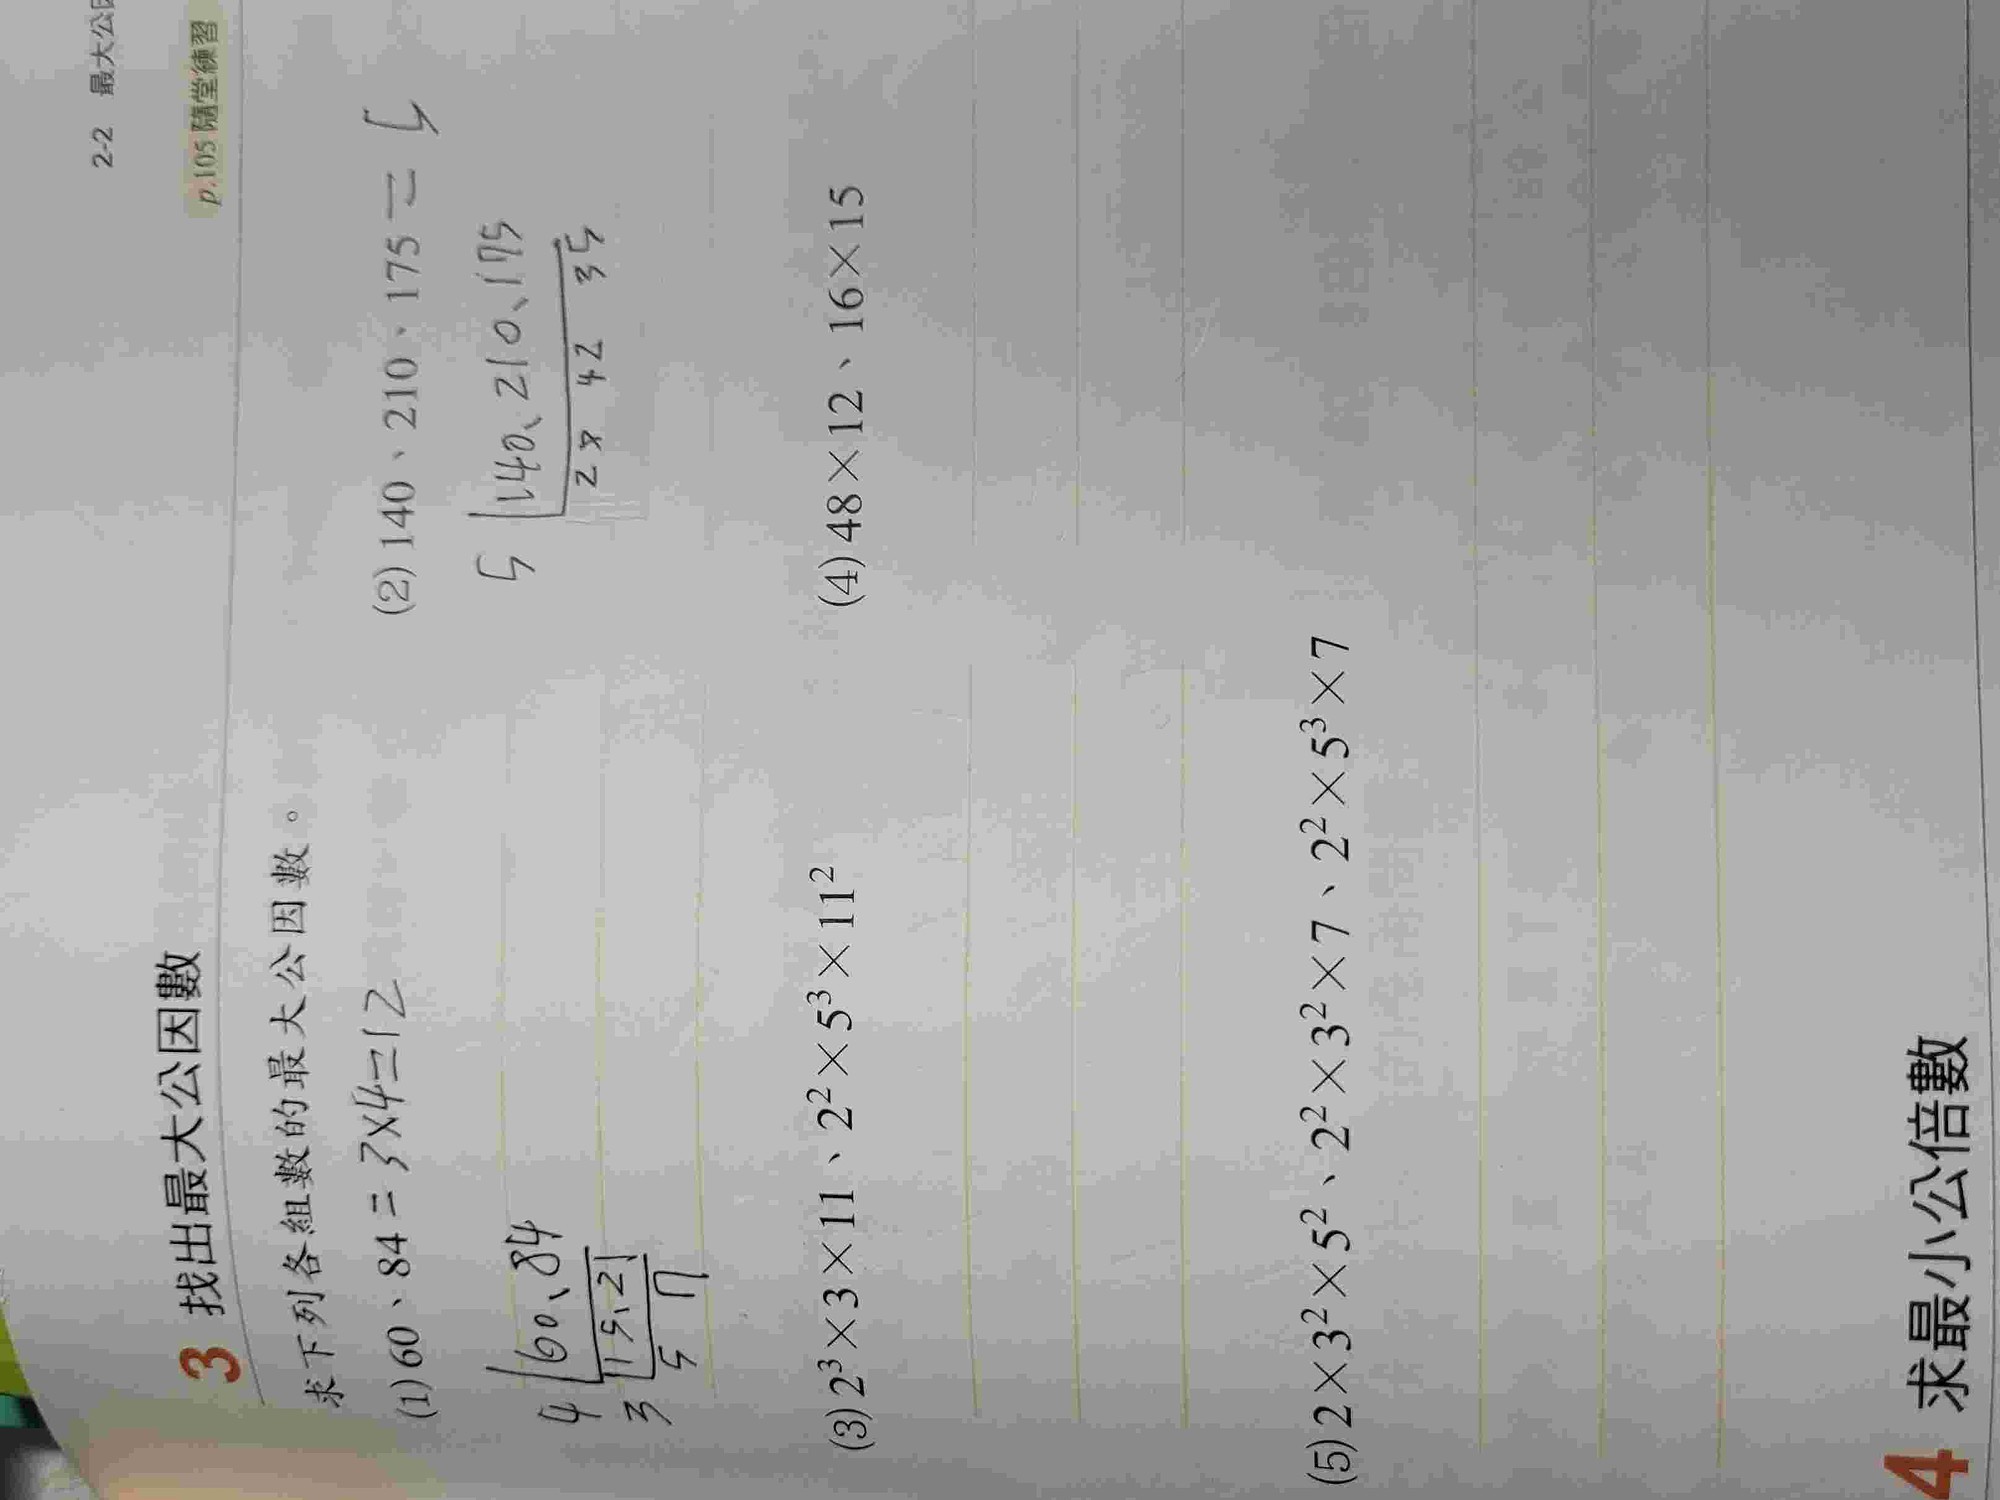 2-2 最大公
p.105 隨堂練習
3 找出最大公因數
求下列各組數的最大公因數。
(1) 60、84 = 3×4=12
4 60、84
3 15、21
5 7
(2) 140、210、175 = 5
5 140、210、175
28 42 35
(3) 2³×3×11、2²×5³×11²
(4) 48×12、16×15
(5) 2×3²×5²、2²×3²×7、2²×5³×7
4 求最小公倍數